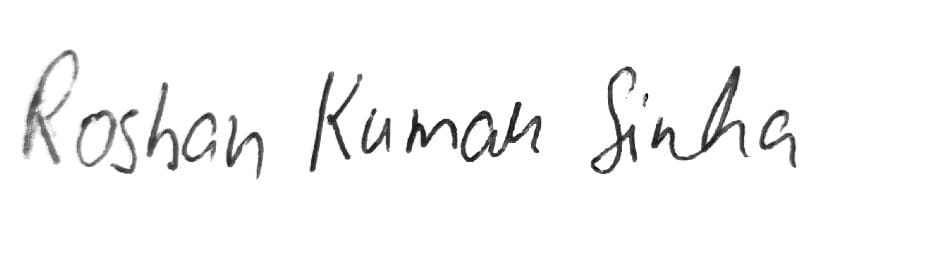 Roshan Kumar Sinha